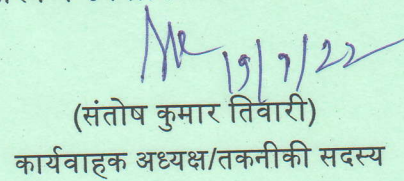 19/7/22
(संतोष कुमार तिवारी)
कार्यवाहक अध्यक्ष/तकनीकी सदस्य